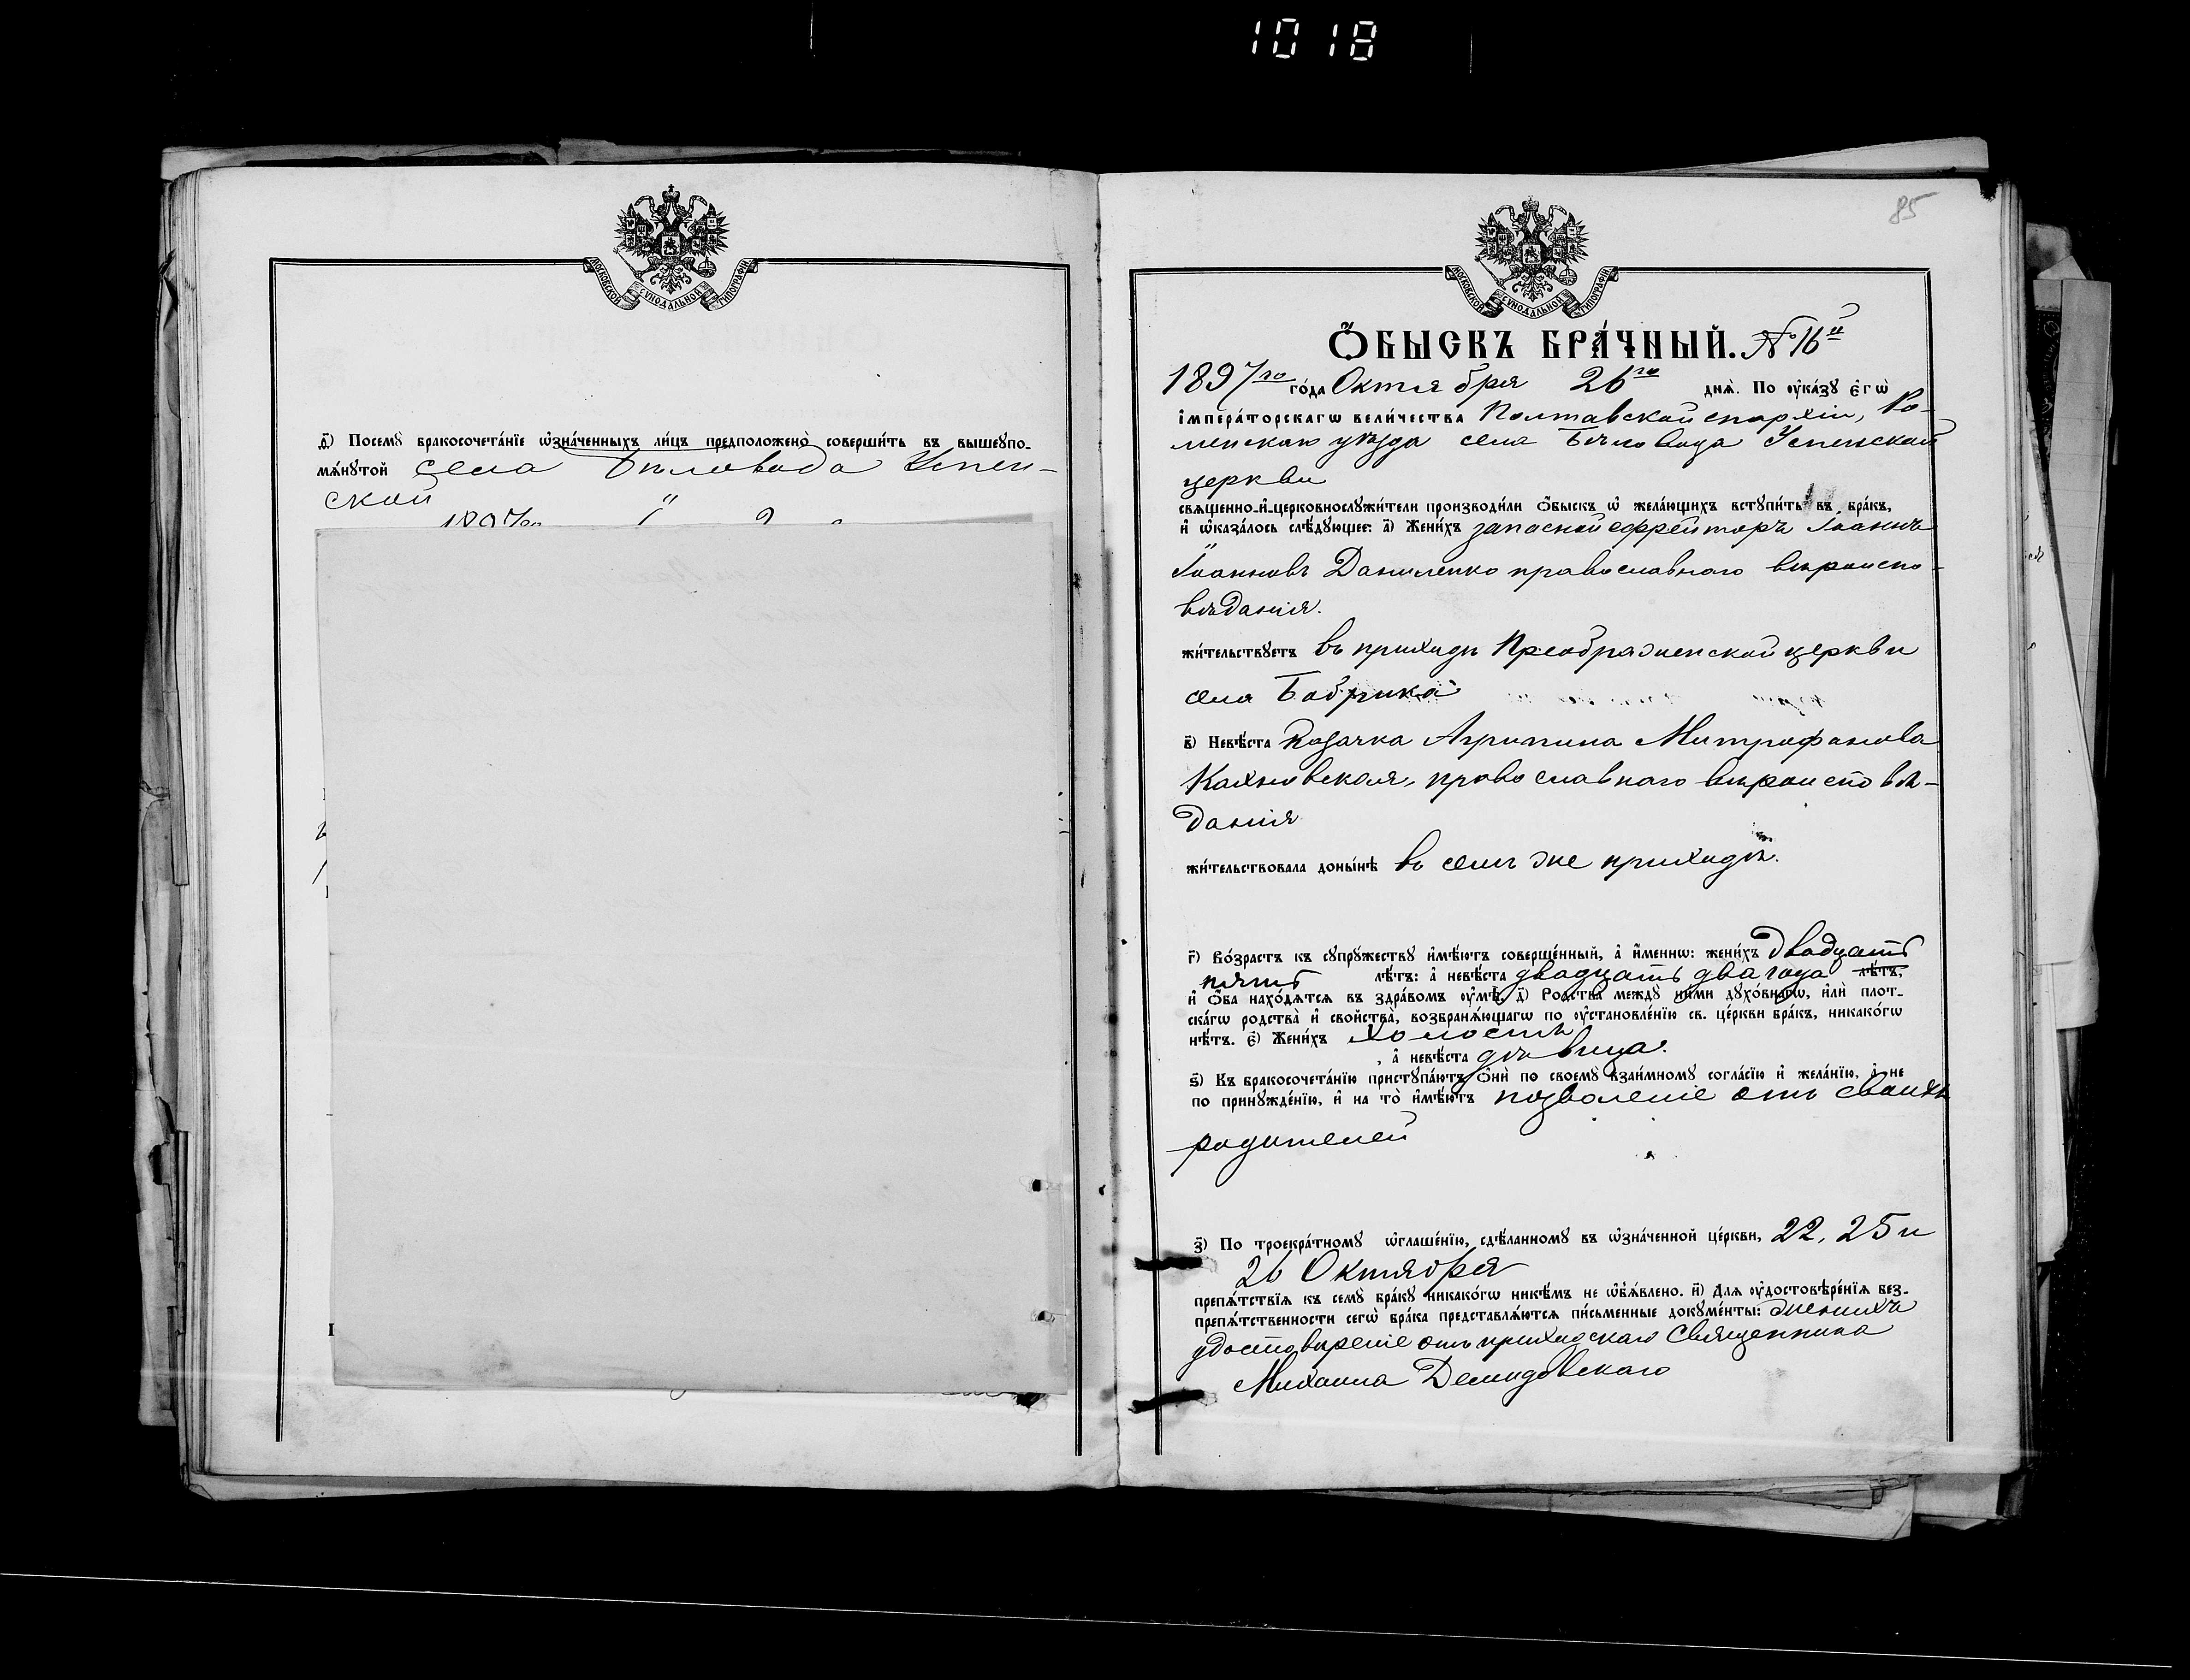 1018
МОСКОВСКОЙ СѴНОДАЛЬНОЙ ТИПОГРАФІИ
д҃) Посемꙋ̀ бракосочета́нїе ѡ҆зна́ченныхъ ли́цъ предположено̀ соверши́ть въ вышеꙋпо-
мѧ́нꙋтой села Бѣловода Успен-
ской
85
МОСКОВСКОЙ СѴНОДАЛЬНОЙ ТИПОГРАФІИ
Ѻ҆БЫСКЪ БРА́ЧНЫЙ. № 16й
1897го го́да Октября 26го днѧ̀. По ᲂу҆ка́зꙋ є҆гѡ̀
і҆мпера́торскагѡ вели́чества Полтавской епархіи, Ро-
менскаго уѣзда села Бѣловода Успенской
церкви
свѧще́нно-и҆-церковнослꙋжи́тели производи́ли ѻ҆́быскъ ѡ҆ жела́ющихъ встꙋпи́ть въ бра́къ,
и҆ ѡ҆каза́лось слѣ́дꙋющее: а҃) Жени́хъ запасной ефрейторъ Іоаннъ
Іоанновъ Даниленко православнаго вѣроиспо-
вѣданія.
жи́тельствꙋетъ въ приходѣ Преображенской церкви
села Бобрика
в҃) Невѣ́ста Козачка Агрипина Митрофанова
Кахновская, православнаго вѣроисповѣ-
данія
жи́тельствовала доны́нѣ въ семъ же приходѣ.
г҃) Во́зрастъ къ сꙋпрꙋ́жествꙋ и҆мѣ́ютъ соверше́нный, а҆ и҆́меннѡ: жени́хъ двадцать
пять лѣ́тъ: а҆ невѣ́ста двадцать два года лѣ́тъ,
и҆ ѻ҆́ба нахо́дѧтсѧ въ здра́вомъ ᲂу҆мѣ̀, д҃) Родства̀ междꙋ̀ ни́ми дꙋхо́внагѡ, и҆лѝ плот-
ска́гѡ родства̀ и҆ свойства̀, возбранѧ́ющагѡ по ᲂу҆становле́нїю св. це́ркви бра́къ, никако́гѡ
нѣ́тъ. є҃) Жени́хъ холостъ
, а҆ невѣ́ста дѣвица.
ѕ҃) Къ бракосочета́нїю пристꙋпа́ютъ ѻ҆нѝ по своемꙋ̀ взаи́мномꙋ согла́сїю и҆ жела́нїю, а҆ не
по принꙋжде́нїю, и҆ на то̀ и҆мѣ́ютъ позволеніе отъ своихъ
родителей
з҃) По троекра́тномꙋ ѡ҆глаше́нїю, сдѣ́ланномꙋ въ ѡ҆зна́ченной це́ркви, 22, 25 и
26 Октября
препѧ́тствїѧ къ семꙋ̀ бра́кꙋ никако́гѡ никѣ́мъ не ѡ҆б̾ѧ́влено. и҃) Для ᲂу҆достовѣре́нїѧ без-
препѧ́тственности сегѡ̀ бра́ка представлѧ́ютсѧ пи́сьменные докꙋме́нты: женихъ
удостовѣреніе отъ приходскаго Священника
Михаила Демидовскаго